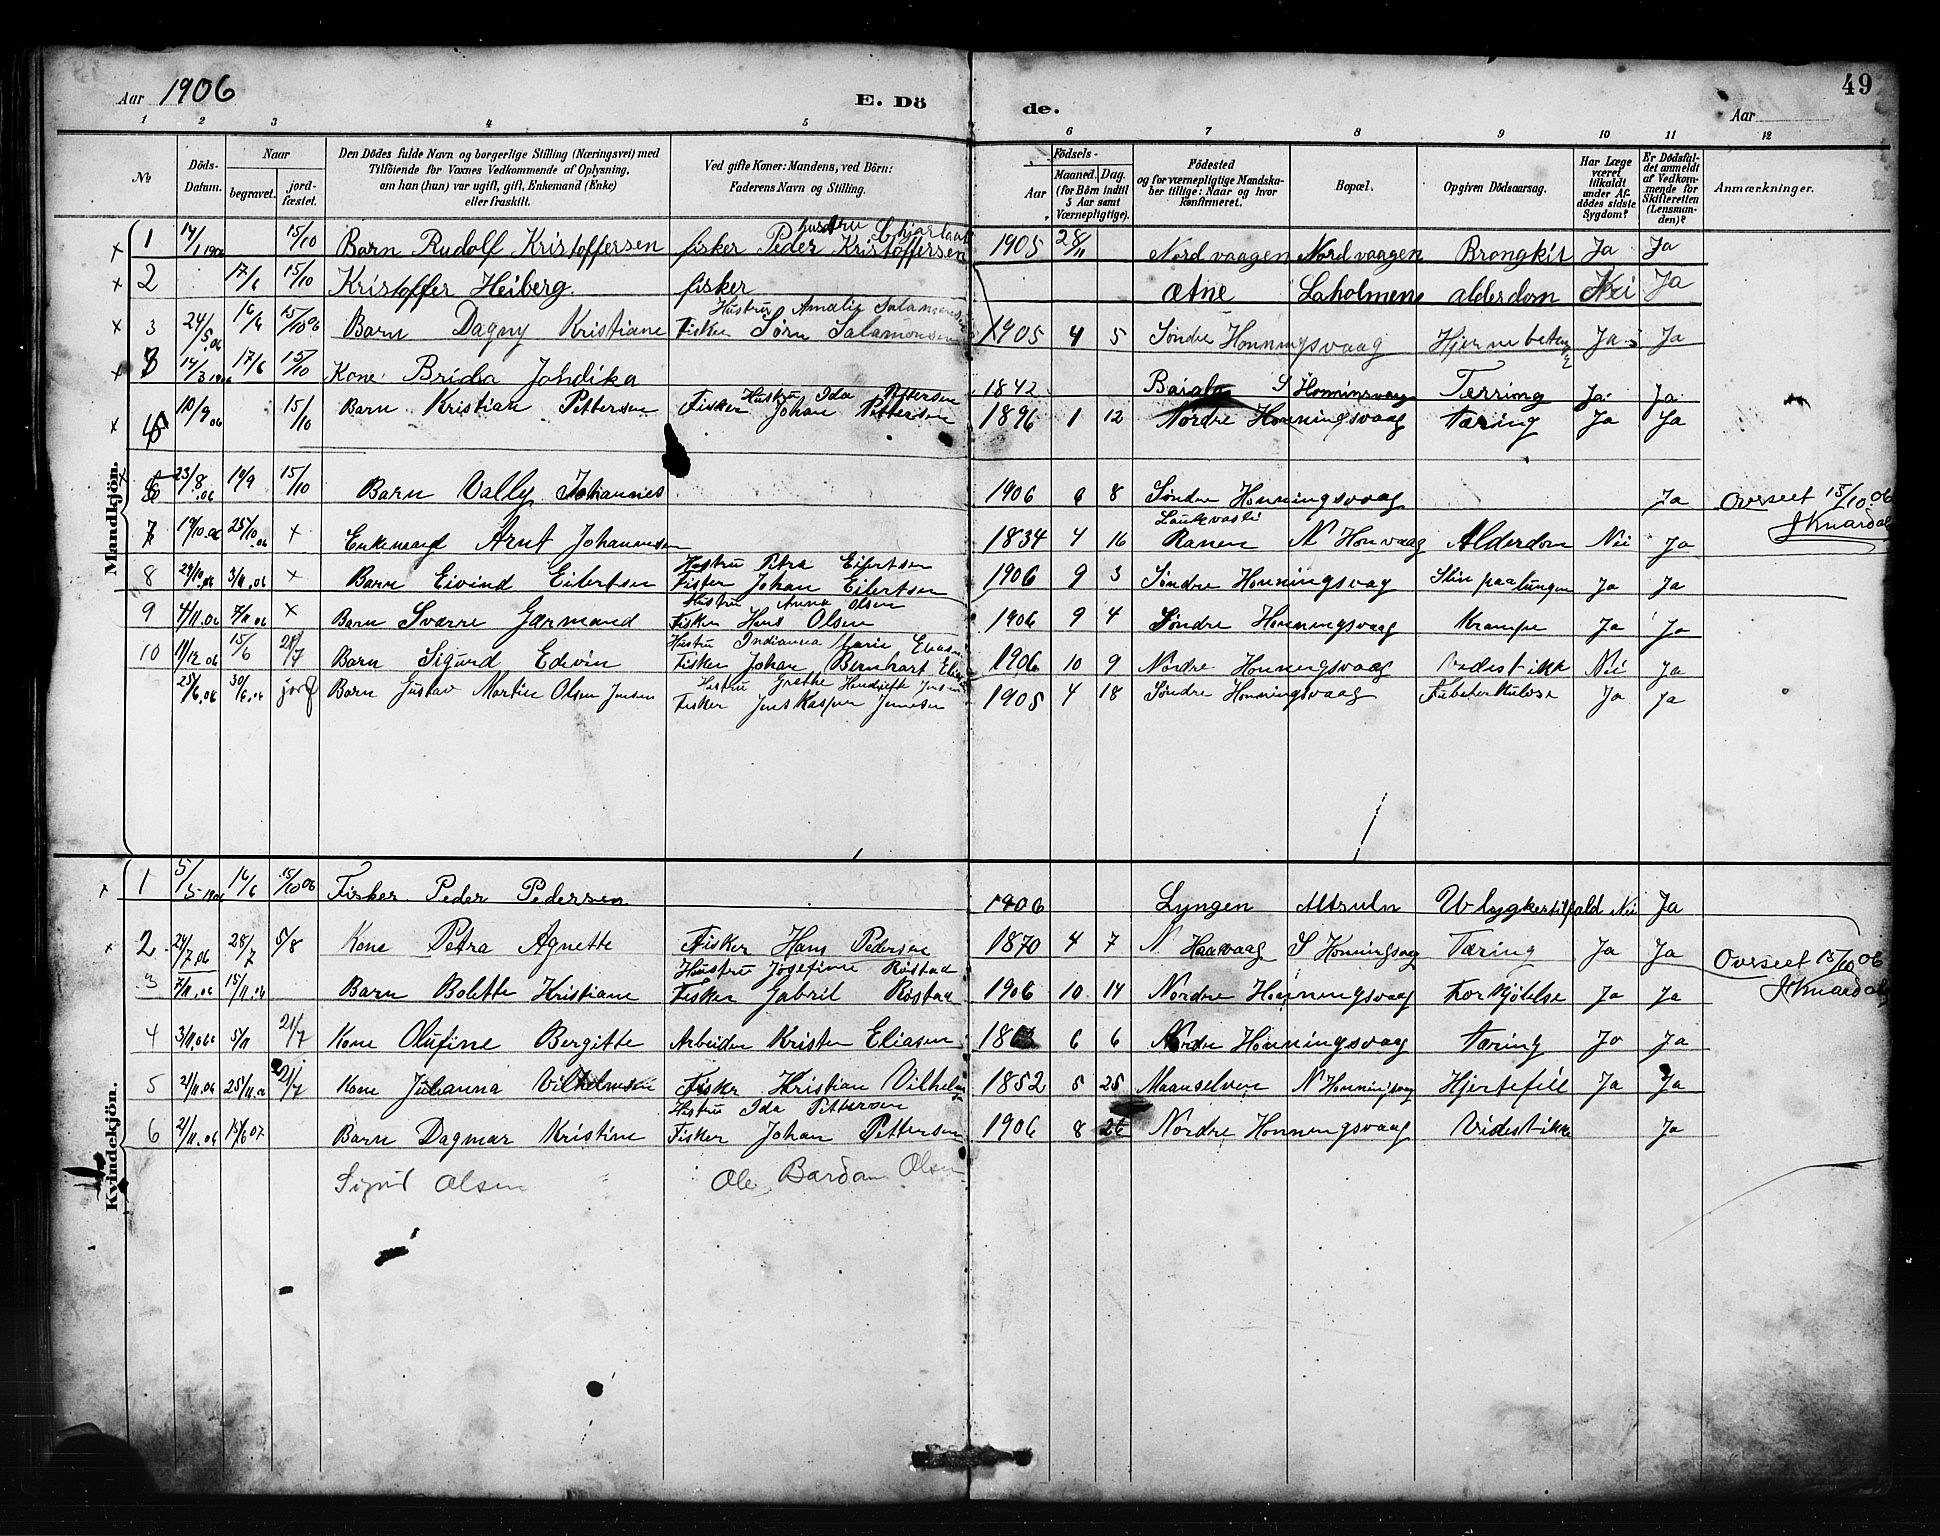 49
Aar 1906 E. Dö de. Aar
1 2 3 4 5 6 7 8 9 10 11 12
No. Döds-Datum. Naar begravet. jord-fæstet. Den Dödes fulde Navn og borgerlige Stilling (Næringsvei) med Tilföiende for Voxnes Vedkommende af Oplysning, om han (hun) var ugift, gift, Enkemand (Enke) eller fraskilt. Ved gifte Koner: Mandens, ved Börn: Faderens Navn og Stilling. Födsels- Aar Maaned. Dag. (for Börn indtil 5 Aar samt Værnepligtige). Födested og for værnepligtige Mandskaber tillige: Naar og hvor konfirmeret. Bopæl. Opgiven Dödsaarsag. Har Læge været tilkaldt under Afdödes sidste Sygdom? Er Dödsfaldet anmeldt af Vedkommende for Skifteretten (Lensmanden)? Anmærkninger.
Mandkjön.
1 14/1 1906 15/10 Barn Rudolf Kristoffersen hustru fisker Peder Kristoffersen 1905 28/11 Nordvaagen Nordvaagen Brongkit Ja Ja
2 17/6 15/10 Kristoffer Heiberg. fisker Ætne Laholmen alderdom Nei Ja
3 24/5.06 16/6 15/10 06 Barn Dagny Kristiane Hustru Amalie Salamonsen Fisker Sørn Salamonsen 1905 4 5 Søndre Honningsvaag Ja Ja
14/3 1906 17/6 15/10 Kone Johdika 1842 S Terring Ja Ja
10/9 06 15/10 Barn Kristian Pettersen Hustru Ida Pettersen Fisker Johan Pettersen 1896 1 12 Nordre Honningsvaag Tæring Ja Ja
6 23/8.06 15/10 Barn Vally Johannes 1906 6 8 Søndre Honningsvaag Ja Overseet 15/10.06
7 19/10.06 25/10.06 x Enkemand Arnt Johannesen 1834 4 16 Ranen N Honvaag Alderdom Nei Ja J Knardal
8 29/10.06 3/11.06 x Barn Eivind Eilertsen Hustru Petra Eilertsen Fisker Johan Eilertsen 1906 9 3 Søndre Honningsvag Slin paa lungen Ja Ja
9 4/11.06 7/11.06 x Barn Sværre Gærmand Hustru Anna Olsen Fisker Hans Olsen 1906 9 4 Søndre Honningsvaag Krampe Ja Ja
10 11/12 06 15/6 21/7 Barn Sigurd Edvin Hustru Indianna Marie Eliasen Fisker Johan Bernhart 1906 10 9 Nordre Honningsvaag Nei Ja
25/6.06 30/6.06 jordf Barn Gustav Martin Olsen Jensen Hustru Grethe Jensen Fisker Jens Kasper Jensen 1905 4 18 Søndre Honningsvaag Tuberkulose Ja Ja
Kvindekjön.
1 5/5-1906 16/6 15/10 06 Fisker Peder Pedersen 1906 Lyngen Altsuln Ulygkestilfald Nei Ja
2 24/7.06 28/7 5/8 Kone Petra Agnette Fisker Hans Pedersen 1870 4 7 N Haavaag S Honningsvag Tæring Ja Ja Overseet 15/10 06
3 7/11.06 15/11.06 Barn Bolette Kristiane Hustru Josefine Røstad Fisker Gabril Røstad 1906 10 14 Nordre Honningsvaag Forkjølelse Ja Ja J Knardal
4 3/11.06 5/11 21/7 Kone Olufine Bergitte Arbeider Kristen Eliasen 6 6 Nordre Honningsvaag Tæring Ja Ja
5 21/11.06 25/11.06 21/7 Kone Julianna Vilhelmsen Fisker Kristian Vilhelmsen 1852 5 25 Maanselven N Honningsvag Hjertefeil Ja Ja
6 21/11.06 15/6 07 Barn Dagmar Kristine Hustru Ida Pettersen Fisker Johan Pettersen 1906 8 26 Nordre Honningsvaag Videstikke Ja
Sigrid Olsen Ole Bardam Olsen